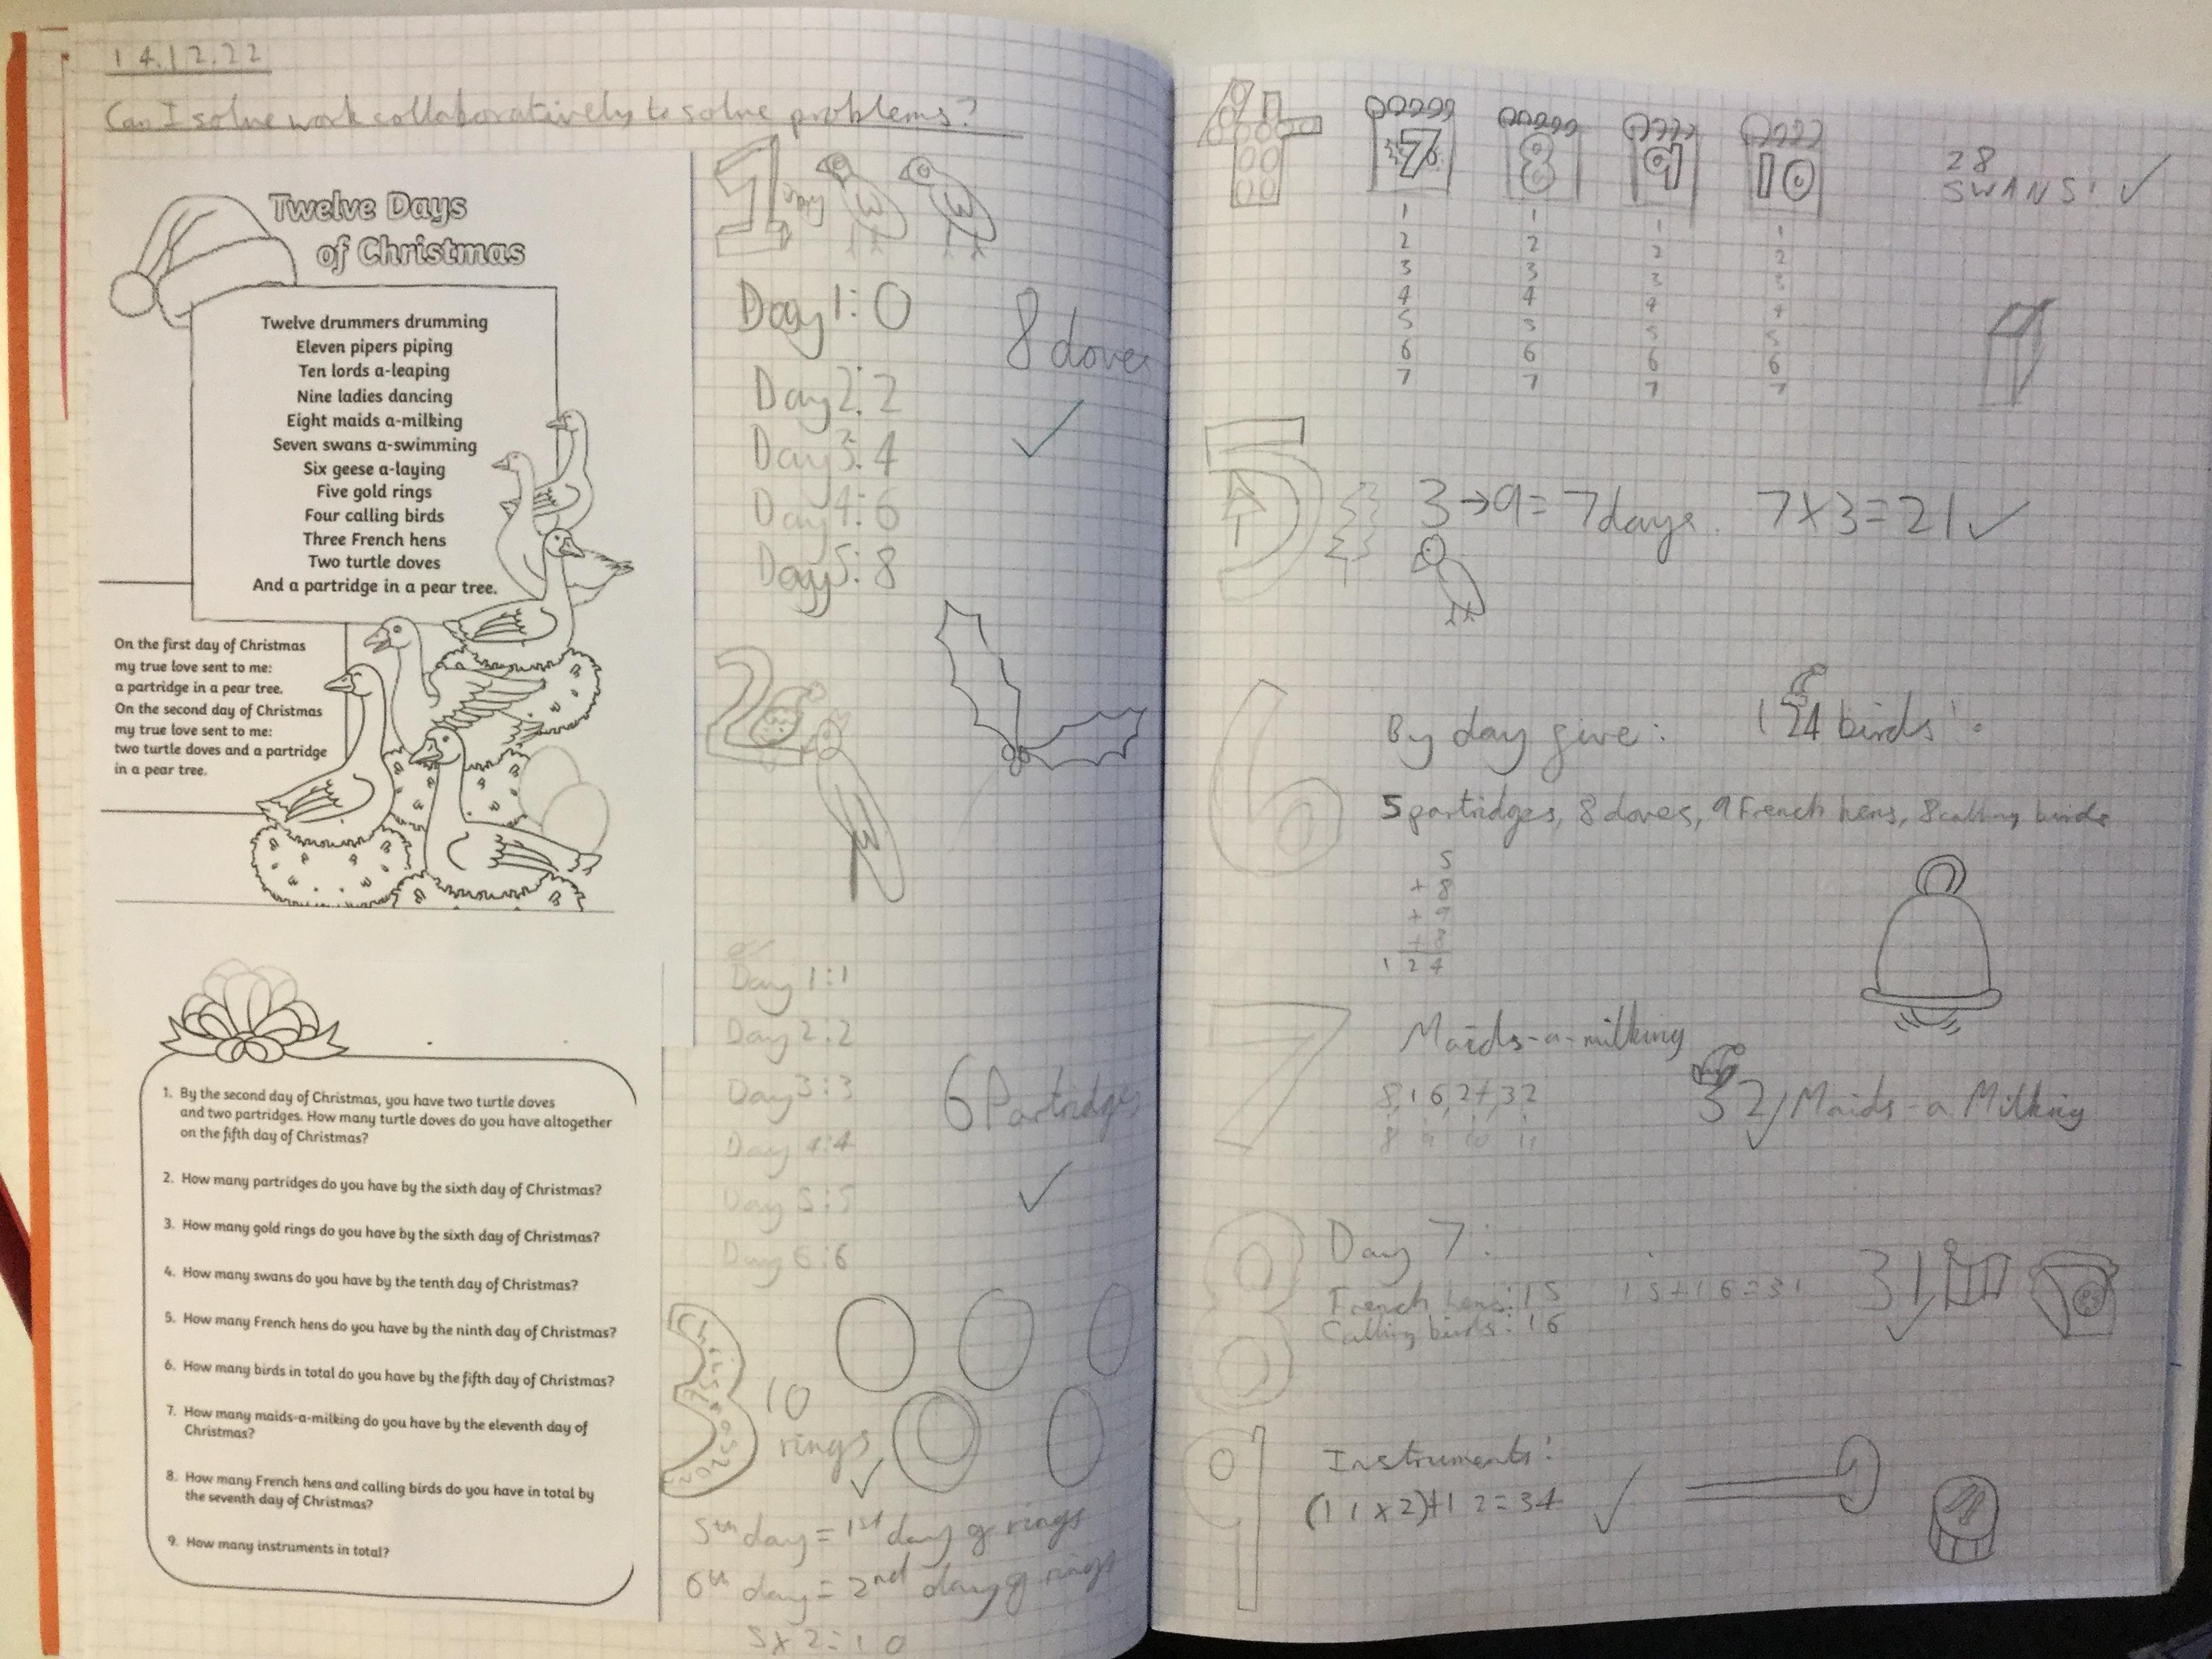 14.12.22
Can I solve work collaboratively to solve problems?
Twelve Days
of Christmas
Twelve drummers drumming
Eleven pipers piping
Ten lords a-leaping
Nine ladies dancing
Eight maids a-milking
Seven swans a-swimming
Six geese a-laying
Five gold rings
Four calling birds
Three French hens
Two turtle doves
And a partridge in a pear tree.
On the first day of Christmas
my true love sent to me:
a partridge in a pear tree.
On the second day of Christmas
my true love sent to me:
two turtle doves and a partridge
in a pear tree.
1. By the second day of Christmas, you have two turtle doves
and two partridges. How many turtle doves do you have altogether
on the fifth day of Christmas?
2. How many partridges do you have by the sixth day of Christmas?
3. How many gold rings do you have by the sixth day of Christmas?
4. How many swans do you have by the tenth day of Christmas?
5. How many French hens do you have by the ninth day of Christmas?
6. How many birds in total do you have by the fifth day of Christmas?
7. How many maids-a-milking do you have by the eleventh day of
Christmas?
8. How many French hens and calling birds do you have in total by
the seventh day of Christmas?
9. How many instruments in total?
1
Day 1: 0
8 doves
Day 2: 2
Day 3: 4
Day 4: 6
Day 5: 8
2
Day 1:1
Day 2:2
Day 3:3
6 Partridges
Day 4:4
Day 5:5
Day 6:6
3
10
rings
5th day = 1st day of rings
6th day = 2nd day of rings
5x2=10
4
7 8 9 10
28
SWANS!
1 1 1 1
2 2 2 2
3 3 3 3
4 4 4 4
5 5 5 5
6 6 6 6
7 7 7 7
5
3→9= 7days. 7x3=21
6
By day give: 124 birds
5 partridges, 8 doves, 9 French hens, 8 calling birds
5
+ 8
+ 9
+ 8
124
7
Maids-a-milking
8,16,24,32
8 9 10 11
32 Maids-a Milking
8
Day 7:
French hens: 15 15+16=31 31
Calling birds: 16
9
Instruments:
(11x2)+12=34